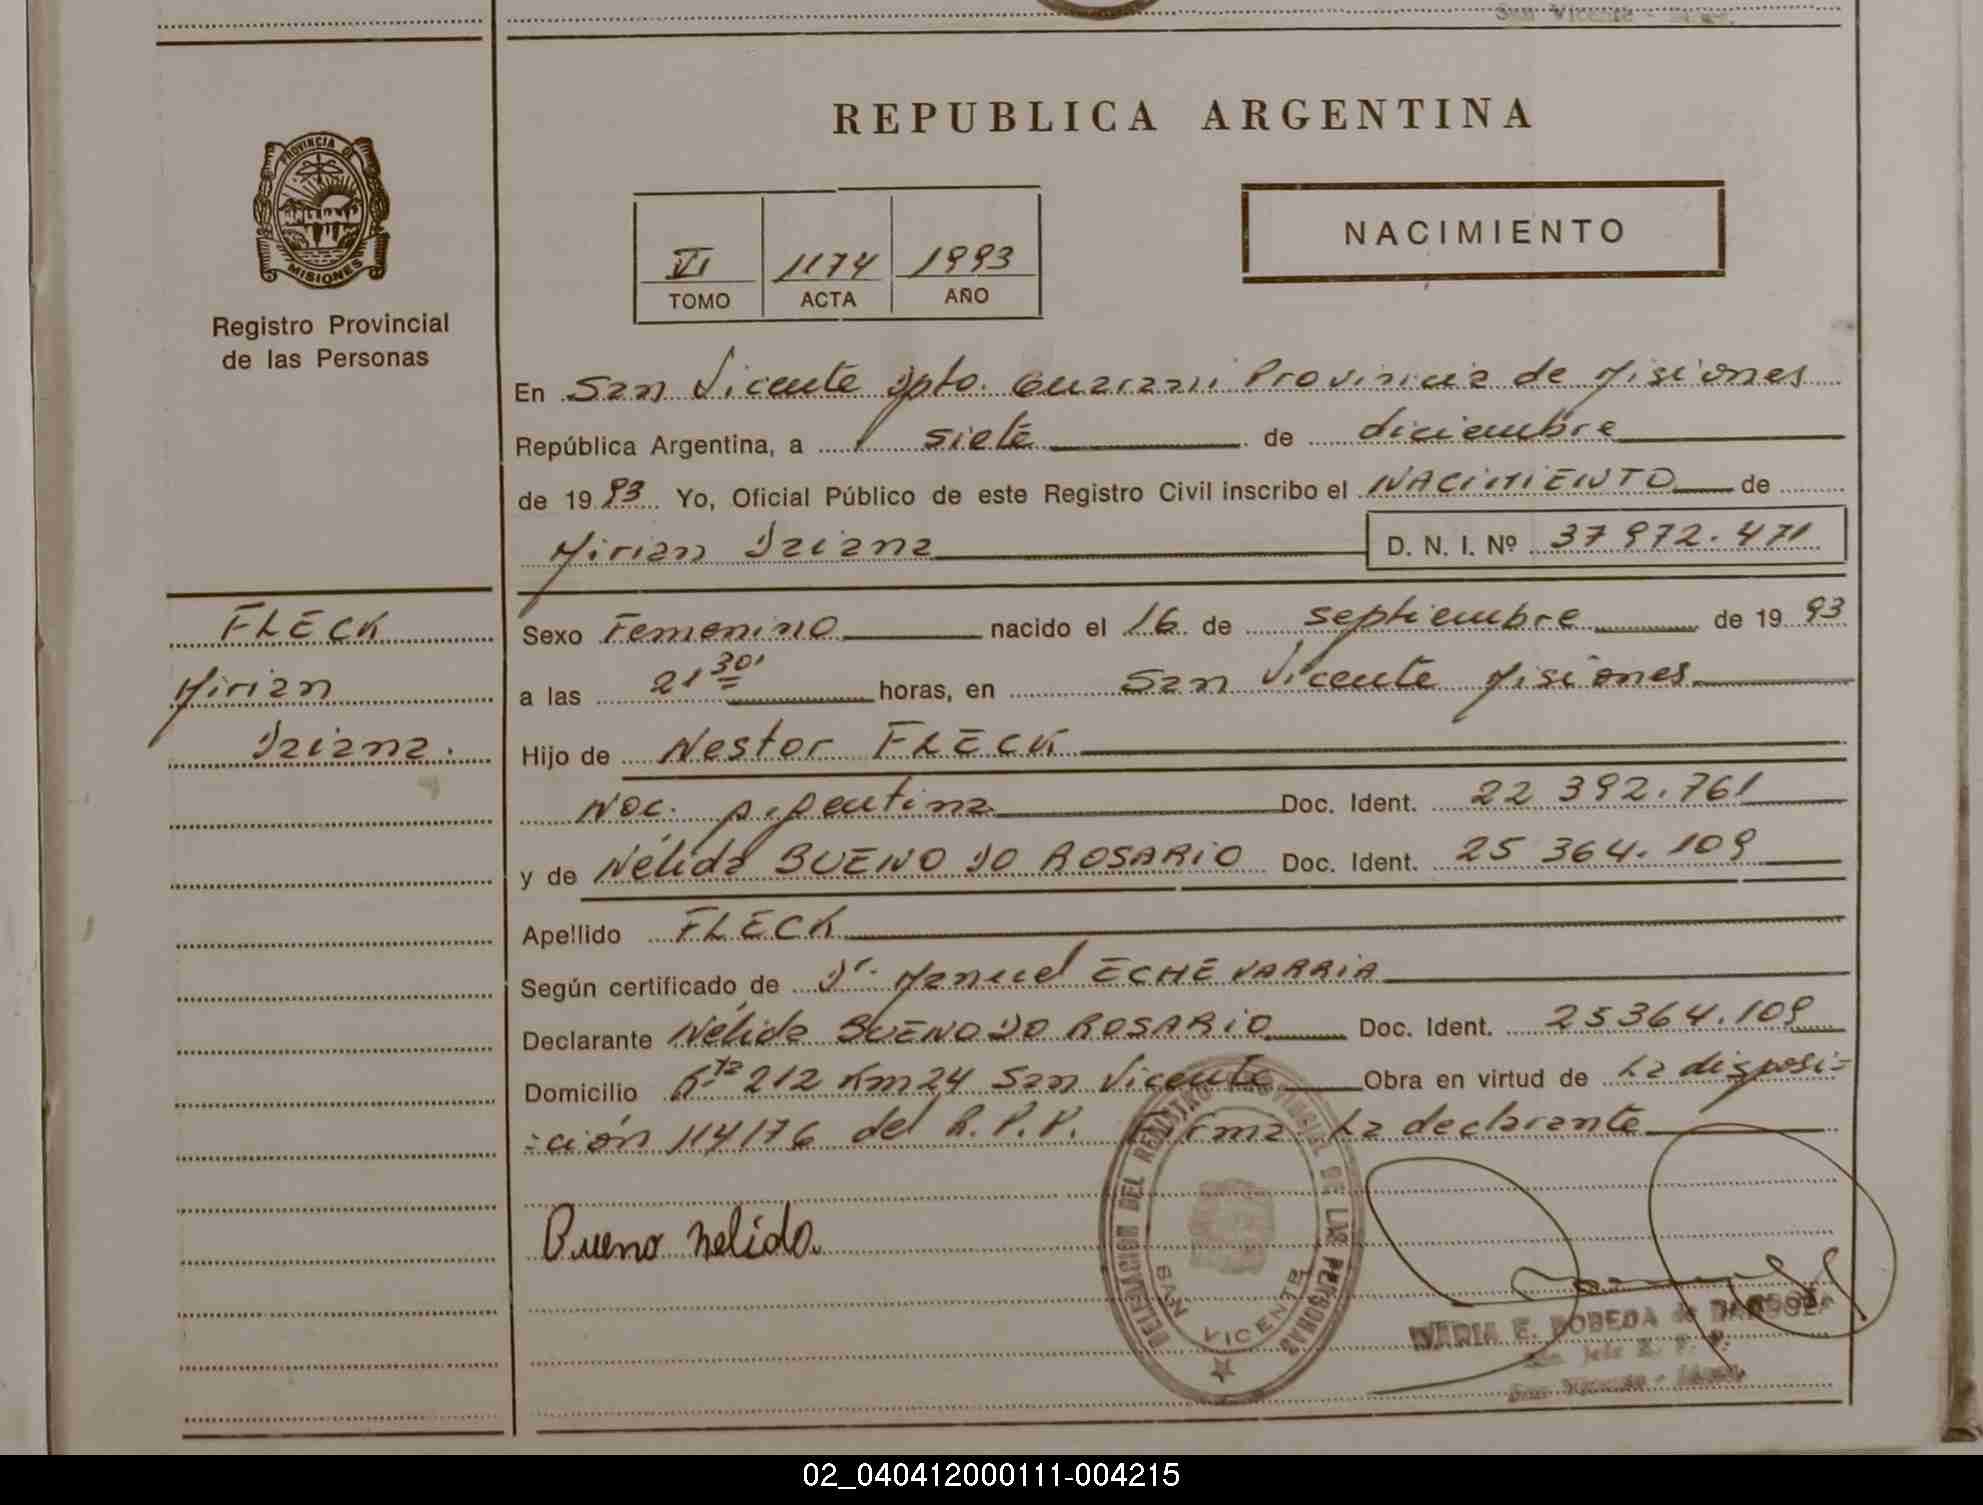 San Vicente - Mnes.
REPUBLICA ARGENTINA
PROVINCIA DE
MISIONES
Registro Provincial
de las Personas
VI 1174 1993
TOMO ACTA AÑO
NACIMIENTO
En San Vicente Dpto. Guarani Provincia de Misiones
República Argentina, a siete de diciembre
de 1993 Yo, Oficial Público de este Registro Civil inscribo el NACIMIENTO de
Mirian Daiana D. N. I. Nº 37 972.471
FLECK
Mirian
Daiana.
Sexo Femenino nacido el 16 de septiembre de 1993
a las 21 30' horas, en San Vicente Misiones
Hijo de Nestor FLECK
Nac. Argentina Doc. Ident. 22 392.761
y de Nélida BUENO DO ROSARIO Doc. Ident. 25 364.109
Apellido FLECK
Según certificado de Dr. Manuel ECHEVARRIA
Declarante Nélida BUENO DO ROSARIO Doc. Ident. 25364.109
Domicilio Rta 212 Km 24 San Vicente Obra en virtud de La disposi=
=ción 114/76 del R.P.P. Firma La declarante
Bueno nelida.
DELEGACION DEL REGISTRO PROVINCIAL DE LAS PERSONAS
SAN VICENTE
MARIA E. POBEDA de
Jefe R. P. P.
San Vicente - Mnes.
02_040412000111-004215